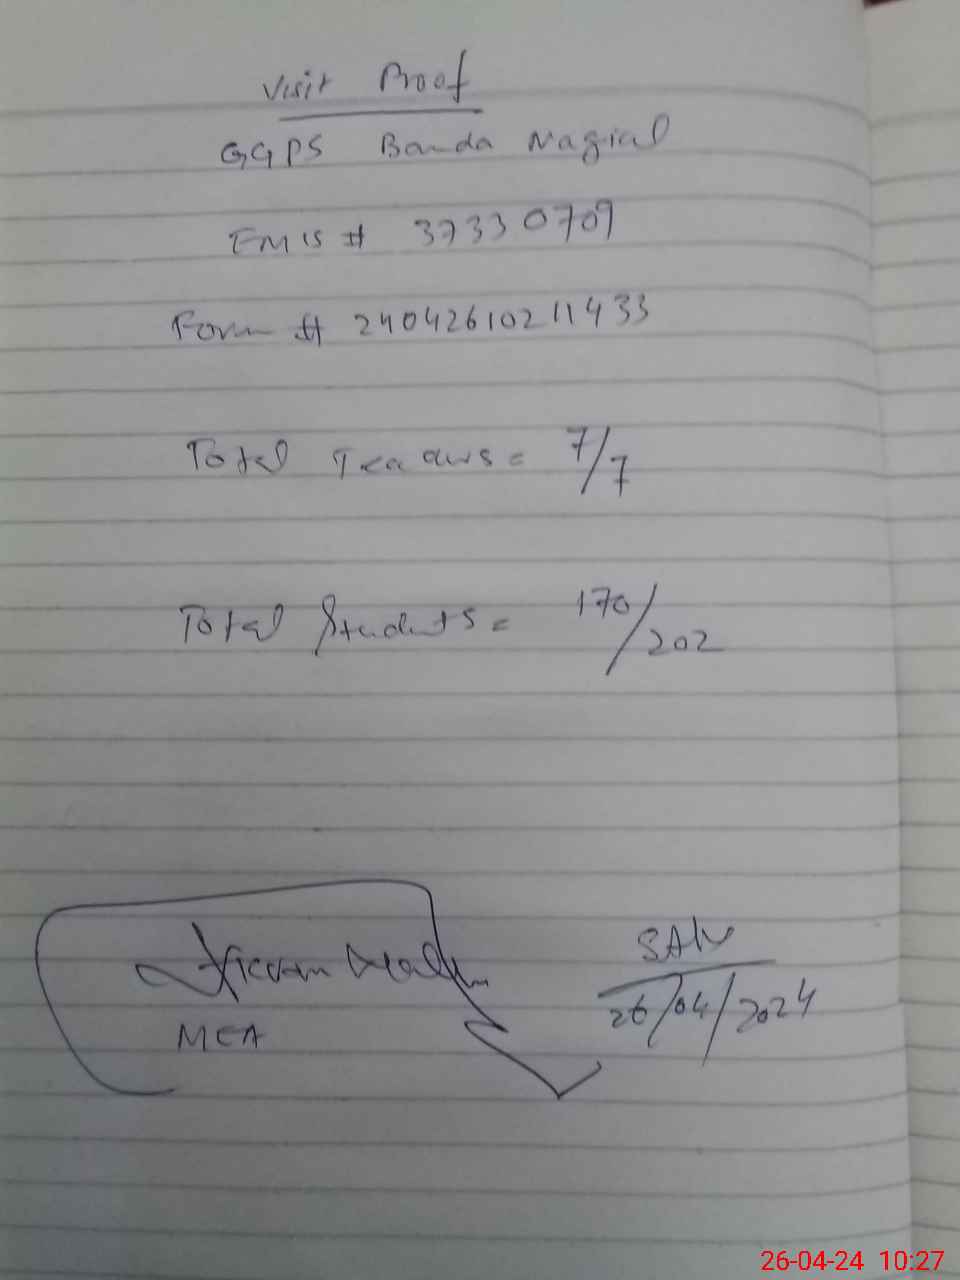 Visit Proof
GGPS Banda Nagial
EMIS # 37330709
Form # 24042610211433
Total Teachers = 7/7
Total Students = 170/202
MEA
26/04/2024
26-04-24 10:27